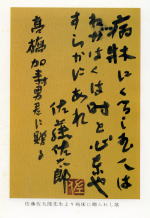 病牀にくるしくては
ねがはくは時と心東や
すらかにあれ
佐藤佐太郎
高橋加寿男君に贈る
佐藤佐太郎先生より病床に贈られし歌